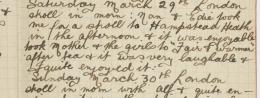 Saturday March 29th London
stroll in morn. Ian & Edie took
me for a stroll to Hampstead Heath
in the afternoon & it was enjoyable
took Mother & the girls to "Fair & Warmer"
after tea & it was very laughable &
I quite enjoyed it.
Sunday March 30th London
stroll in morn with alf & quite en-